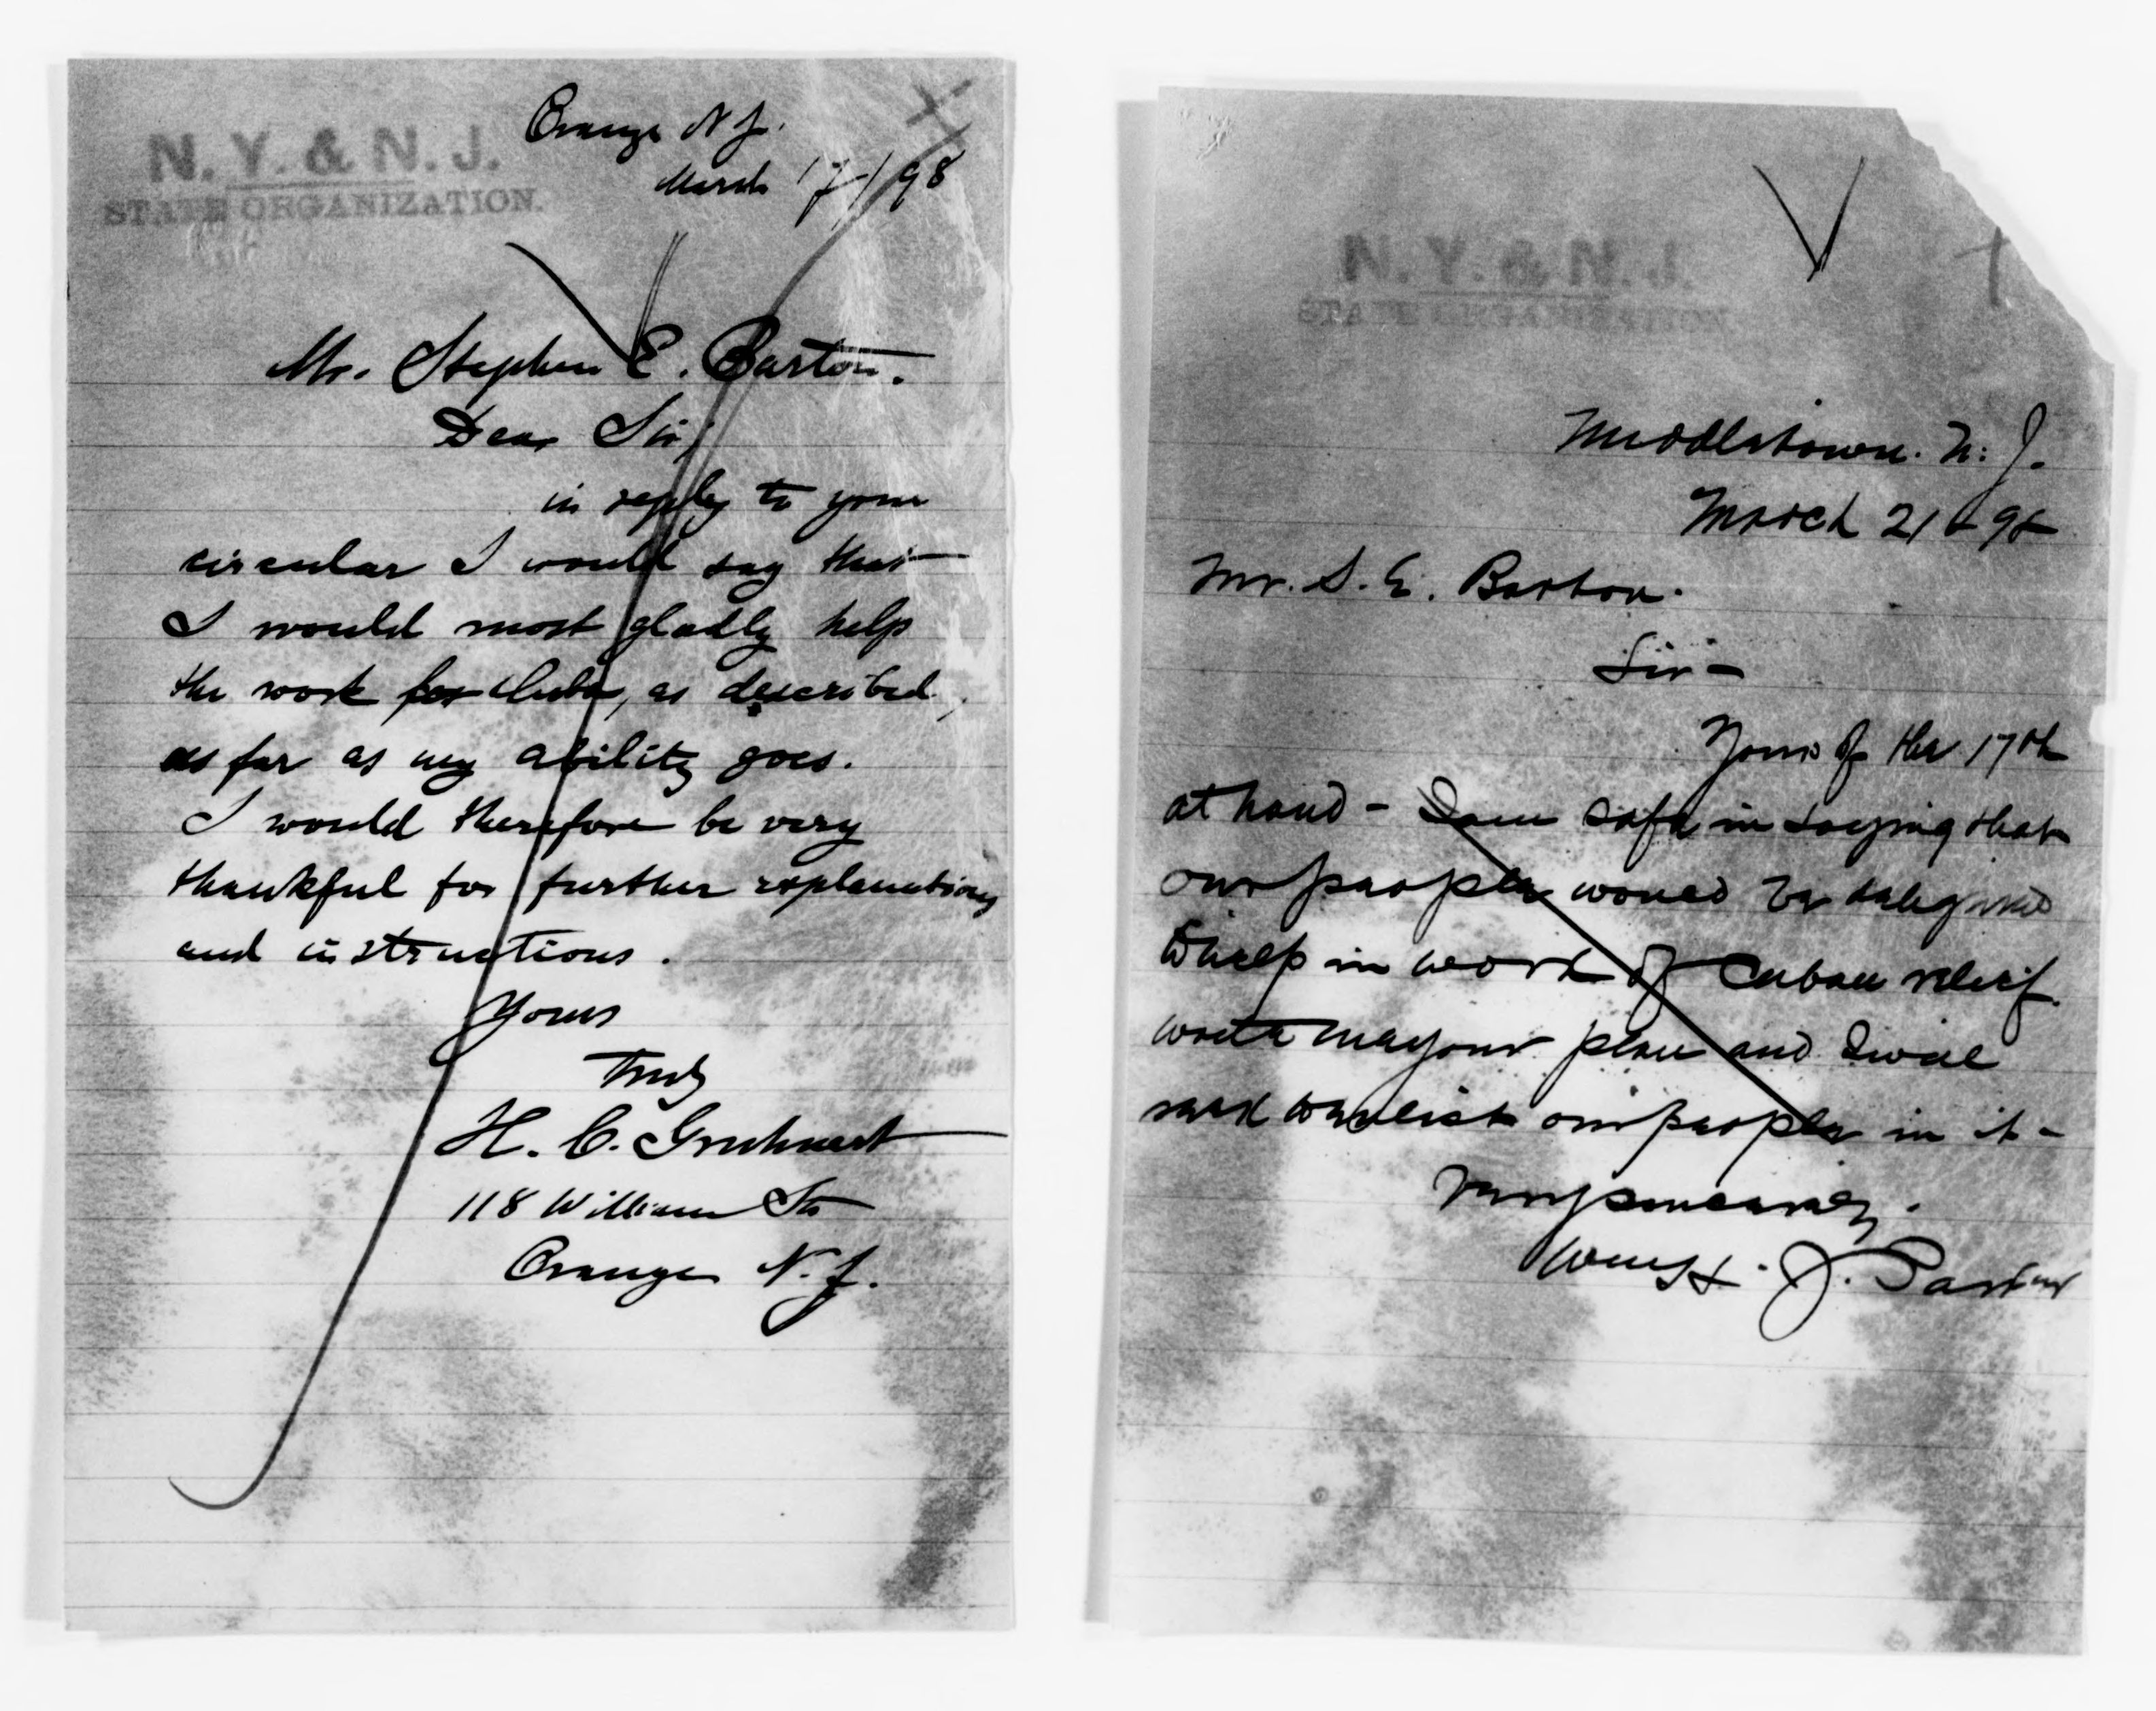 N. Y. & N. J.
STATE ORGANIZATION.
Orange N J.
March 17/98
Mr. Stephen E. Barton.
Dear Sir;
in reply to your
circular I would say that
I would most gladly help
the work for Cuba, as described,
as far as my ability goes.
I would therefore be very
thankful for further explanations
and instructions.
Yours
Truly
H. C.
118 William St
Orange N. J.
N. Y. & N. J.
STATE ORGANIZATION.
Middletown. N. J.
March 21 98
Mr. S. E. Barton.
Sir-
Yours of the 17th
at hand - I am safe in saying that
our people would be
to help in work of Cuban relief.
write me your plan and I will
our people in it -
Very sincerely.
J.